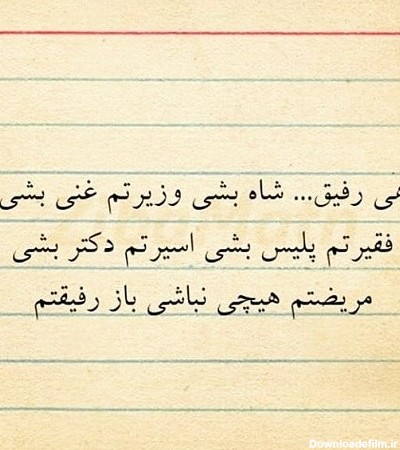 هی رفیق... شاه بشی وزیرتم غنی بشی
فقیرتم پلیس بشی اسیرتم دکتر بشی
مریضتم هیچی نباشی باز رفیقتم
Downloadefilm.ir